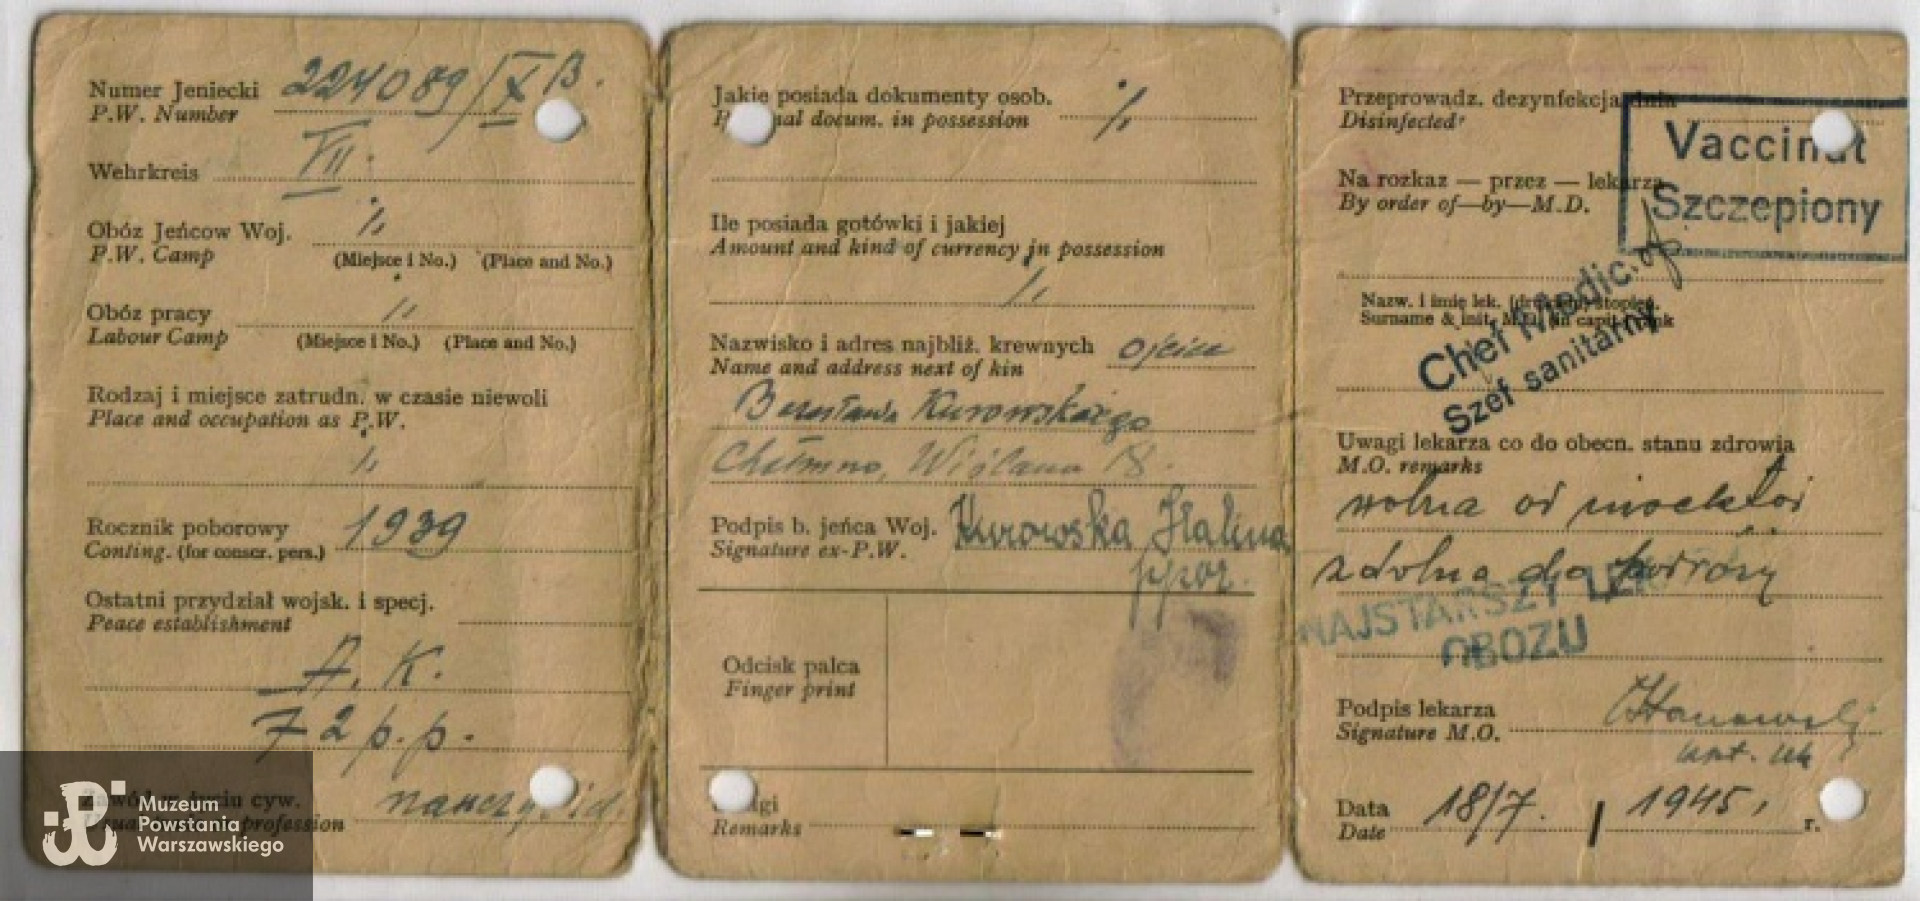 Numer Jeniecki 224089/XB.
P.W. Number
Wehrkreis VII.
Obóz Jeńcow Woj.
P.W. Camp
(Miejsce i No.) (Place and No.)
Obóz pracy
Labour Camp
(Miejsce i No.) (Place and No.)
Rodzaj i miejsce zatrudn. w czasie niewoli
Place and occupation as P.W.
Rocznik poborowy 1939
Conting. (for conscr. pers.)
Ostatni przydział wojsk. i specj.
Peace establishment
A. K.
72 p. p.
Zawód w życiu cyw.
profession
Muzeum
Powstania
Warszawskiego
Jakie posiada dokumenty osob.
docum. in possession
Ile posiada gotówki i jakiej
Amount and kind of currency in possession
Nazwisko i adres najbliż. krewnych
Name and address next of kin
Kurowskiego
Chełmno, Wiślana 18.
Podpis b. jeńca Woj. Kurowska Halina
Signature ex-P.W.
ppor.
Odcisk palca
Finger print
Remarks
Przeprowadz. dezynfekcja dnia
Disinfected
Vaccinat
Szczepiony
Na rozkaz — przez — lekarza
By order of—by—M.D.
Nazw. i imię lek.
Surname & init.
Chef Medic.
Szef sanitarny
Uwagi lekarza co do obecn. stanu zdrowia
M.O. remarks
wolna od
zdolna do podróży
NAJSTARSZY LEK.
OBOZU
Podpis lekarza
Signature M.O.
Data 18/7. 1945 r.
Date